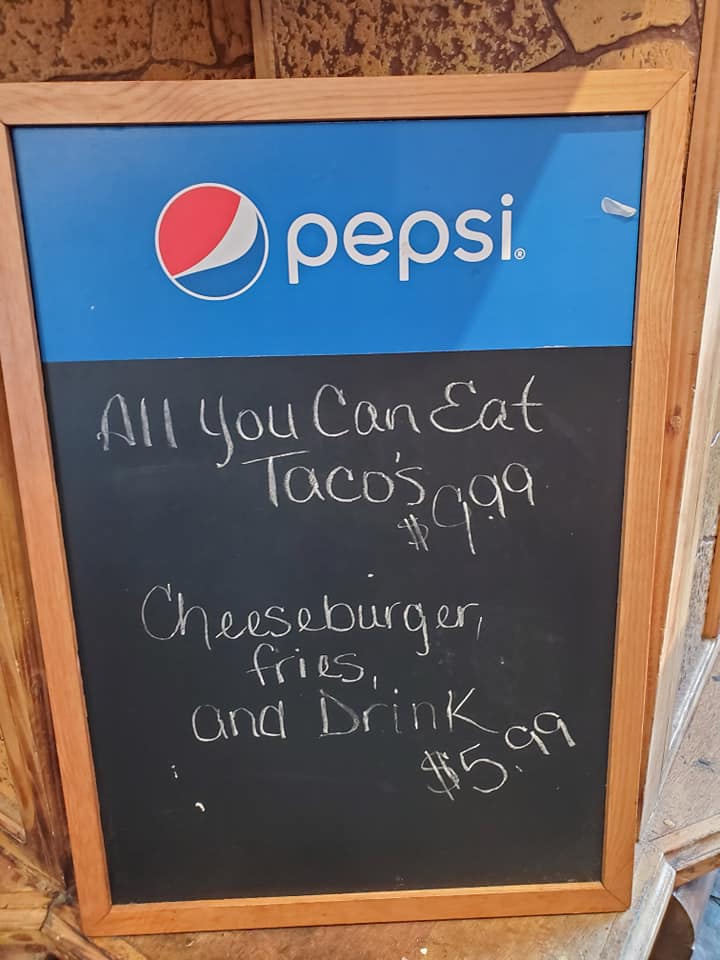 pepsi®
All You Can Eat
Taco's
$9.99
Cheeseburger,
fries,
and Drink
$5.99